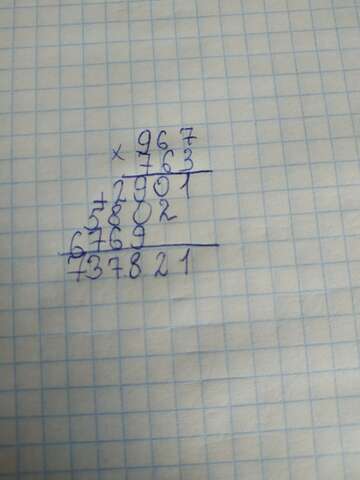 967
× 763
+ 2901
5802
6769
737821